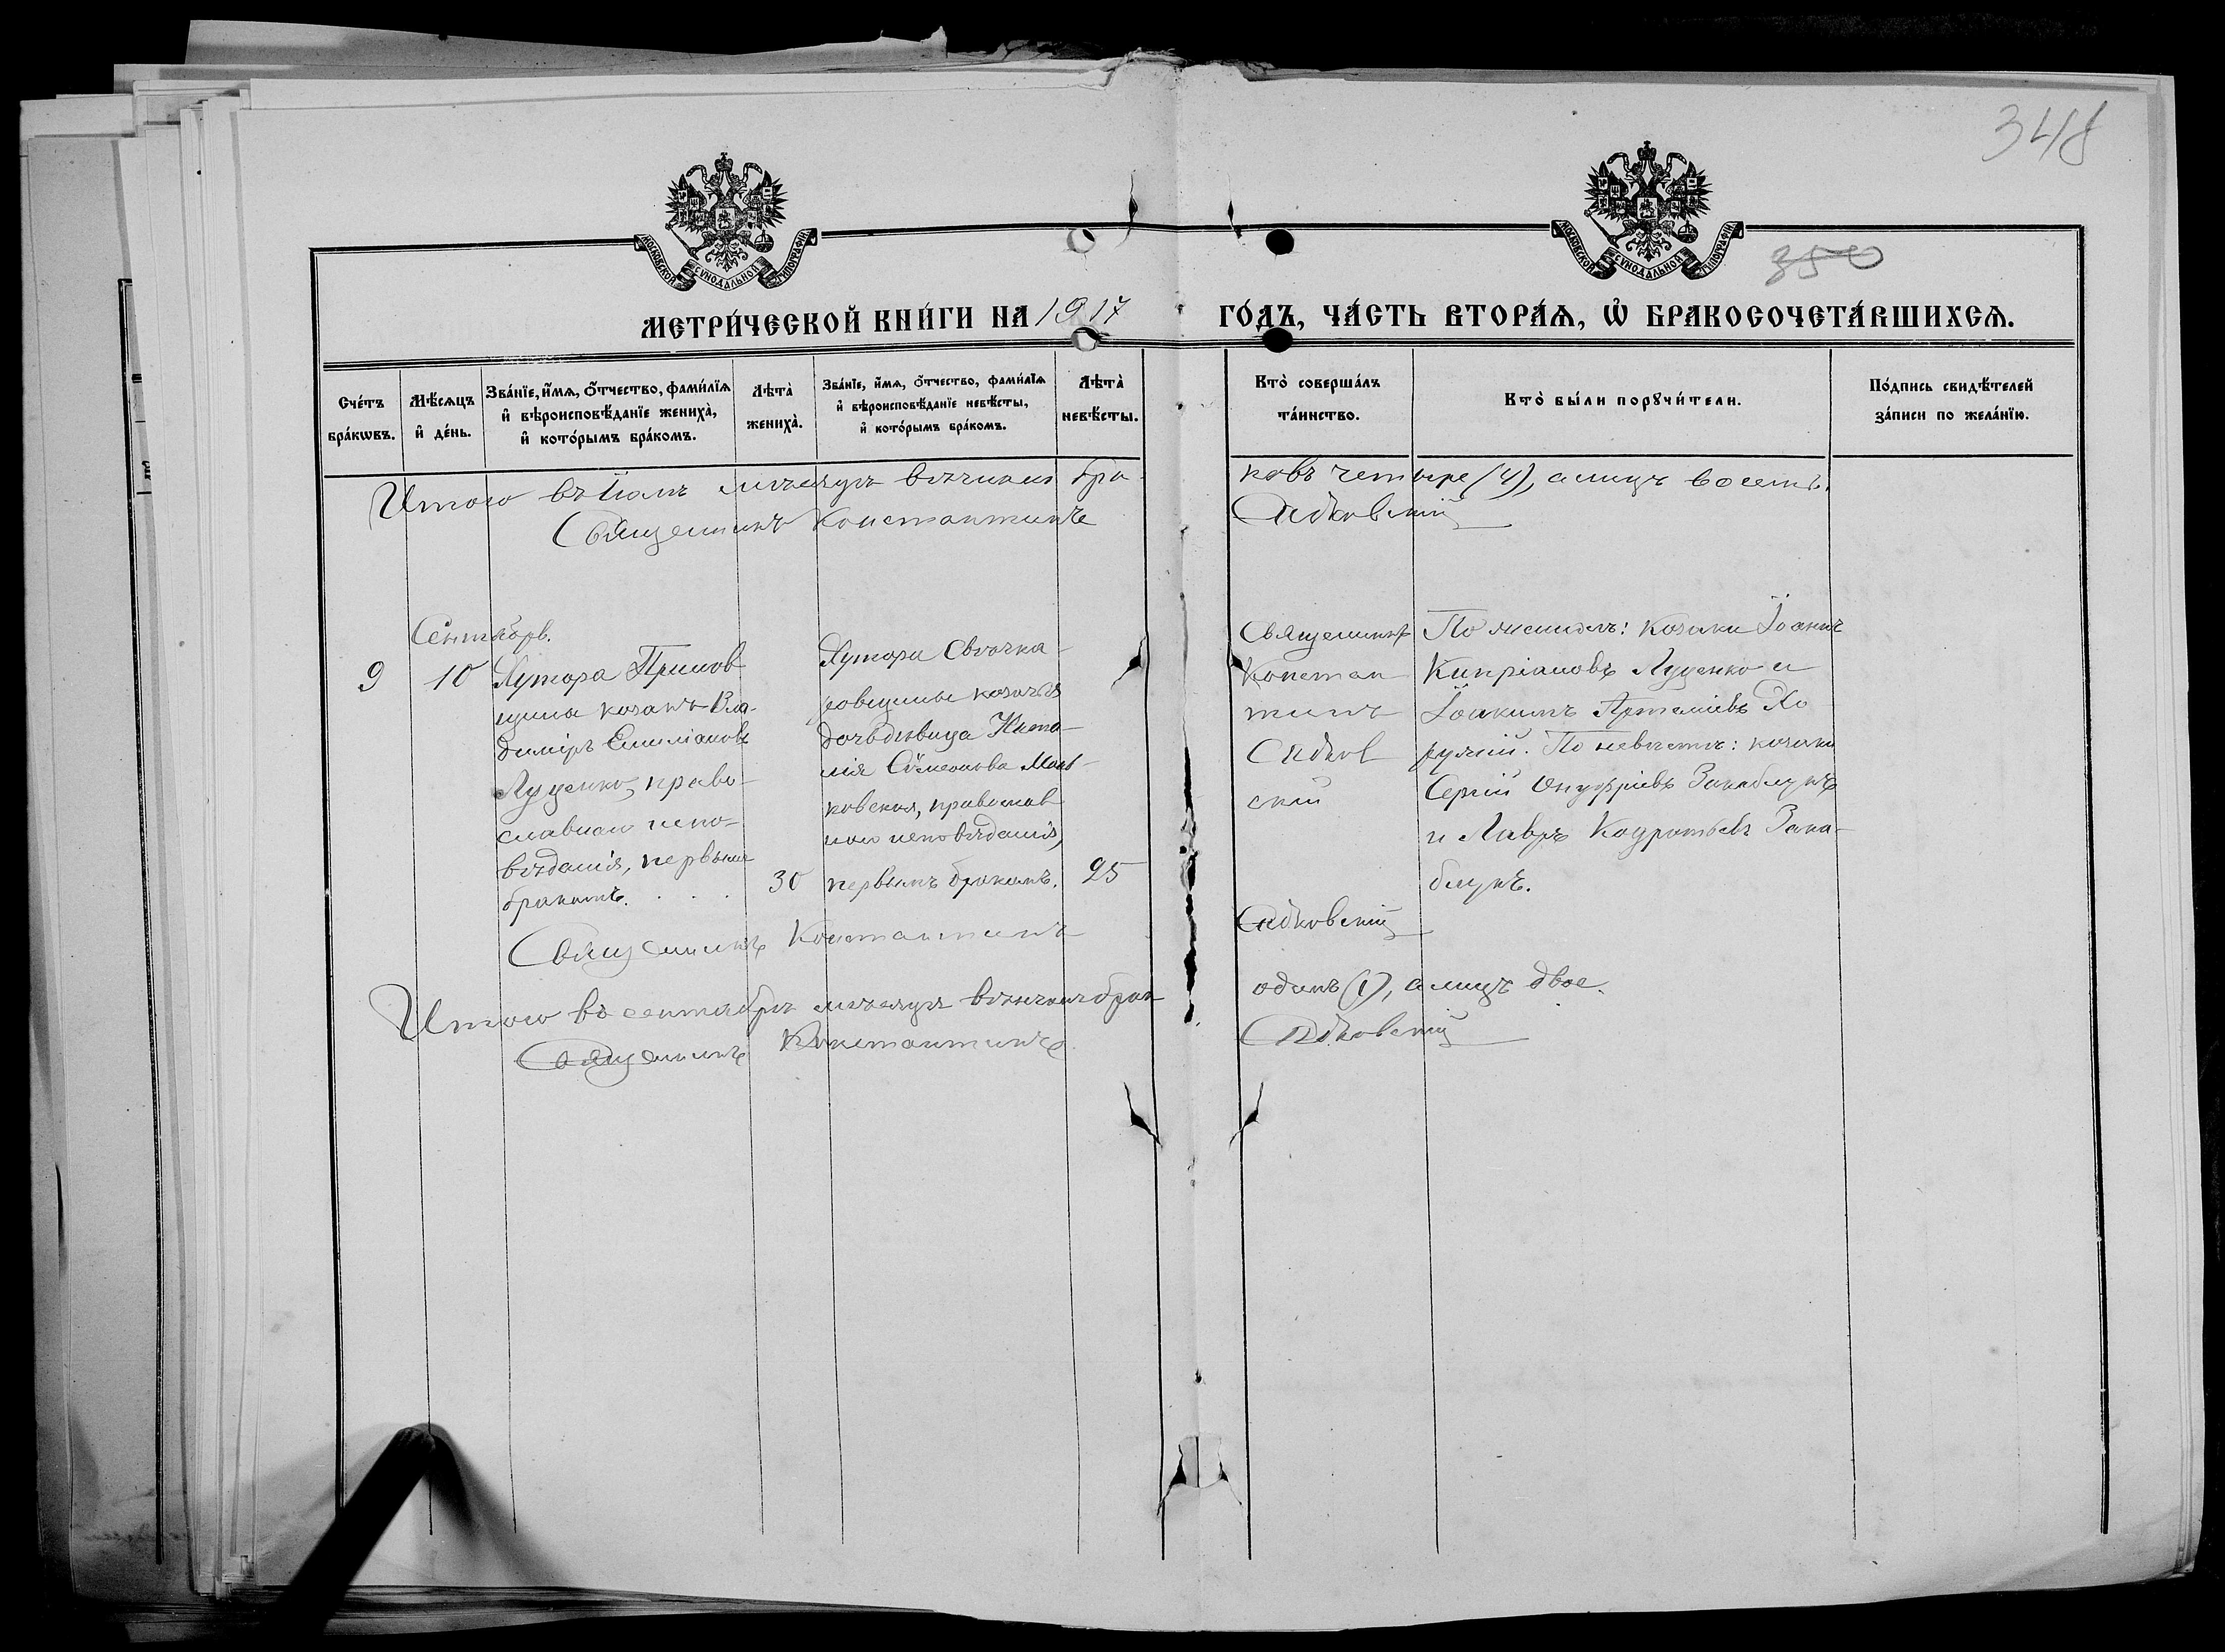 348
МОСКОВСКОЙ СѴНОДАЛЬНОЙ ТИПОГРАФІИ
МОСКОВСКОЙ СѴНОДАЛЬНОЙ ТИПОГРАФІИ
350
МЕТРИ́ЧЕСКОЙ КНИ́ГИ НА 1917 ГО́ДЪ, ЧА́СТЬ ВТОРА́Ѧ, Ѿ БРАКОСОЧЕТА́ВШИХСѦ.
Сче́тъ
бра́кѡвъ.
Мѣ́сѧцъ
и҆ де́нь.
Зва́нїе, и҆́мѧ, ѻ҆́тчество, фами́лїѧ
и҆ вѣроисповѣ́данїе жениха̀,
и҆ кото́рымъ бра́комъ.
Лѣта̀
жениха̀.
Зва́нїе, и҆́мѧ, ѻ҆́тчество, фами́лїѧ
и҆ вѣроисповѣ́данїе невѣ́сты,
и҆ кото́рымъ бра́комъ.
Лѣта̀
невѣ́сты.
Кто̀ соверша́лъ
та́инство.
Кто̀ бы́ли порꙋчи́тели.
По́дпись свидѣ́телей
за́писи по жела́нїю.
Итого въ Іюлѣ мѣсяцѣ вѣнчано бра-
ковъ четыре (4), а лицъ восемь.
Священникъ Константинъ
Сядковскій
Сентябрь.
9
10
Хутора
щины козакъ Вла-
диміръ Емиліановъ
Луценко, право-
славнаго испо-
вѣданія, первымъ
бракомъ. . . .
30
Хутора
козачья
дочь дѣвица Ната-
лія Сѵмеонова
ковская, православ
наго исповѣданія,
первымъ бракомъ.
25
Священникъ
Констан
тинъ
Сядков
скій
По женихѣ: козаки Іоаннъ
Кипріановъ Луценко и
Іоакимъ Артеміевъ Хо
ружій. По невѣстѣ: козаки
Сергій Онуфріевъ Закаблукъ
и Лавръ Кодратьевъ Зака-
блукъ.
Священникъ Константинъ
Сядковскій
Итого въ сентябрѣ мѣсяцѣ вѣнчанъ бракъ
одинъ (1), а лицъ двое.
Священникъ Константинъ
Сядковскій